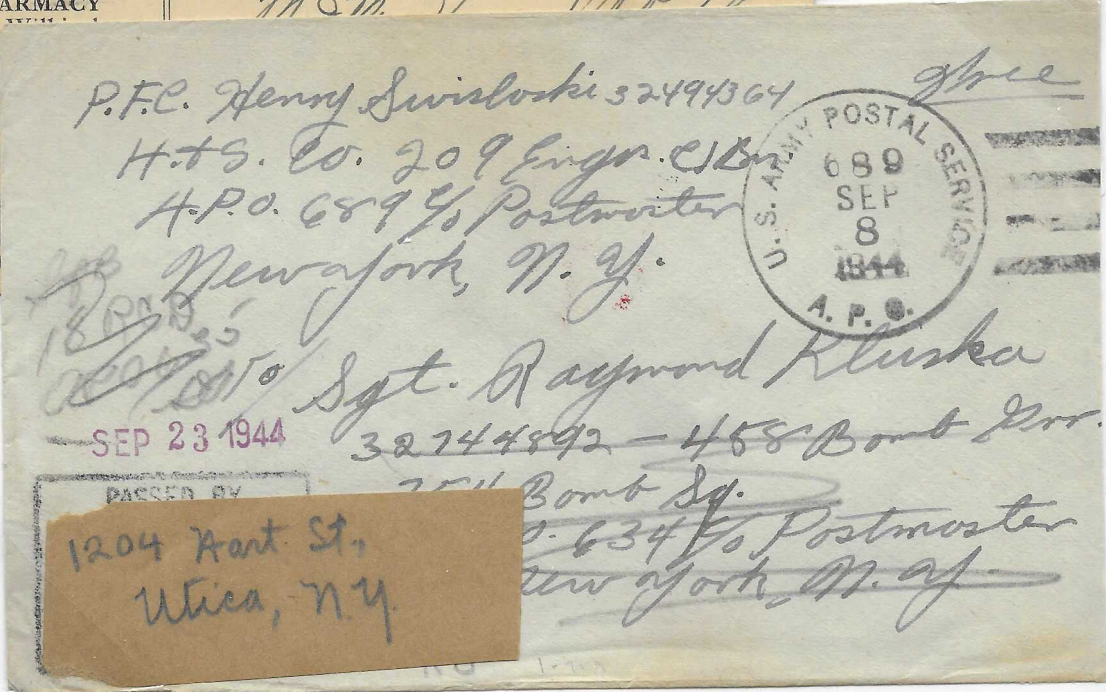 ARMACY
P.F.C. Henry Swisloski 32494364
Free
H.&S. Co. 209 Engr. C Bn
A.P.O. 689 c/o Postmaster
New York, N.Y.
U.S. ARMY POSTAL SERVICE
689
SEP
8
1944
A. P. O.
To Sgt. Raymond Kluska
SEP 23 1944
32744892 - 458 Bomb Grp.
PASSED BY
754 Bomb Sq.
634 c/o Postmaster
New York, N.Y.
1204 Hart St.,
Utica, N.Y.